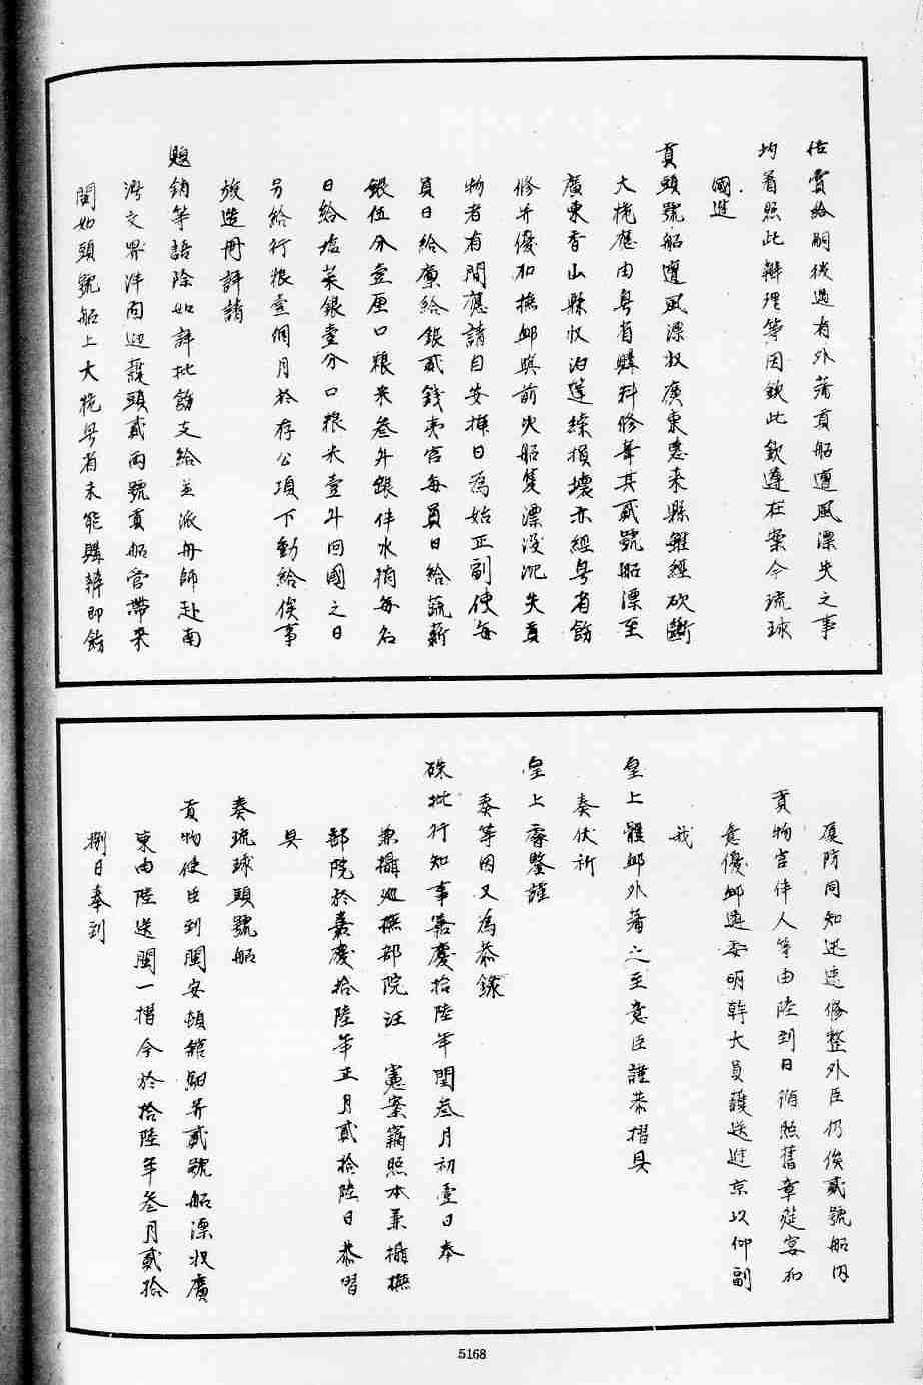 估賞給嗣後遇有外藩貢船遭風漂失之事
均着照此辦理等因欽此欽遵在案今琉球
國進
貢頭號船遭風漂收廣東惠來縣雖經砍斷
大桅應由粵省購料修葺其貳號船漂至
廣東香山縣收泊蓬繚損壞亦經粵省飭
修并優加撫卹與前次船隻漂沒沉失貢
物者有間應請自安插日為始正副使每
員日給廩給銀貳錢夷官每員日給蔬薪
銀伍分壹厘口粮米叁升跟伴水梢每名
日給塩菜銀壹分口粮米壹升回國之日
另給行粮壹個月於存公項下動給俟事
竣造冊評請
題銷等語除如詳批飭支給並派舟師赴南
澳交界洋面迎護頭貳兩號貢船管帶來
閩如頭號船上大桅粵省未能購辦即飭
厦防同知迅速修整外臣仍俟貳號船內
貢物官伴人等由陸到日循照舊章筵宴加
意優卹遴委明幹大員護送進京以仰副
我
皇上體卹外藩之至意臣謹恭摺具
奏伏祈
皇上睿鑒謹
奏等因又為恭錄
硃批行知事嘉慶拾陸年閏叁月初壹日奉
兼攝廵撫部院汪 憲案竊照本兼攝撫
部院於嘉慶拾陸年正月貳拾陸日恭摺
具
奏琉球頭號船
貢物使臣到閩安頓館驲并貳號船漂收廣
東由陸送閩一摺今於拾陸年叁月貳拾
捌日奉到
5168